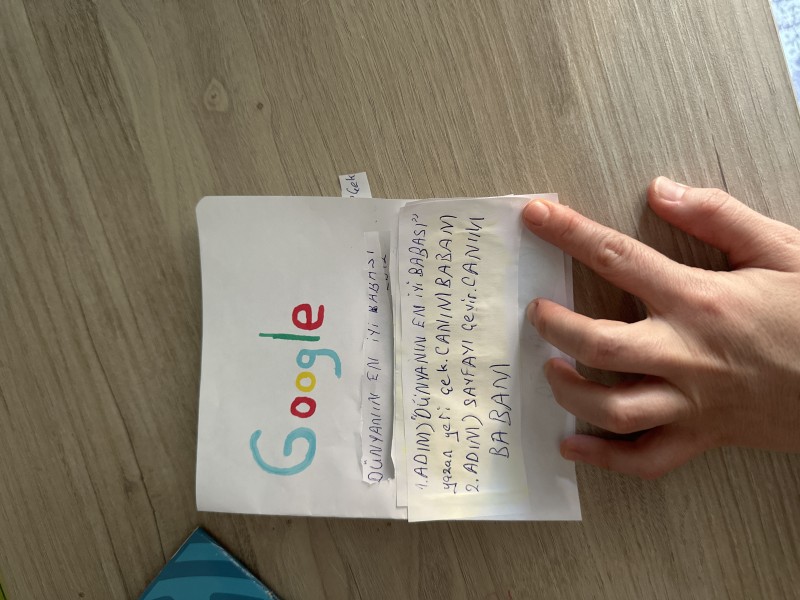 Google
DÜNYANIN EN iYi BABASI
Çek
1. ADIM) "DÜNYANIN EN iYi BABASI"
yazan yeri çek. CANIM BABAM
2. ADIM) SAYFAYI Çevir. CANIM
BABAM